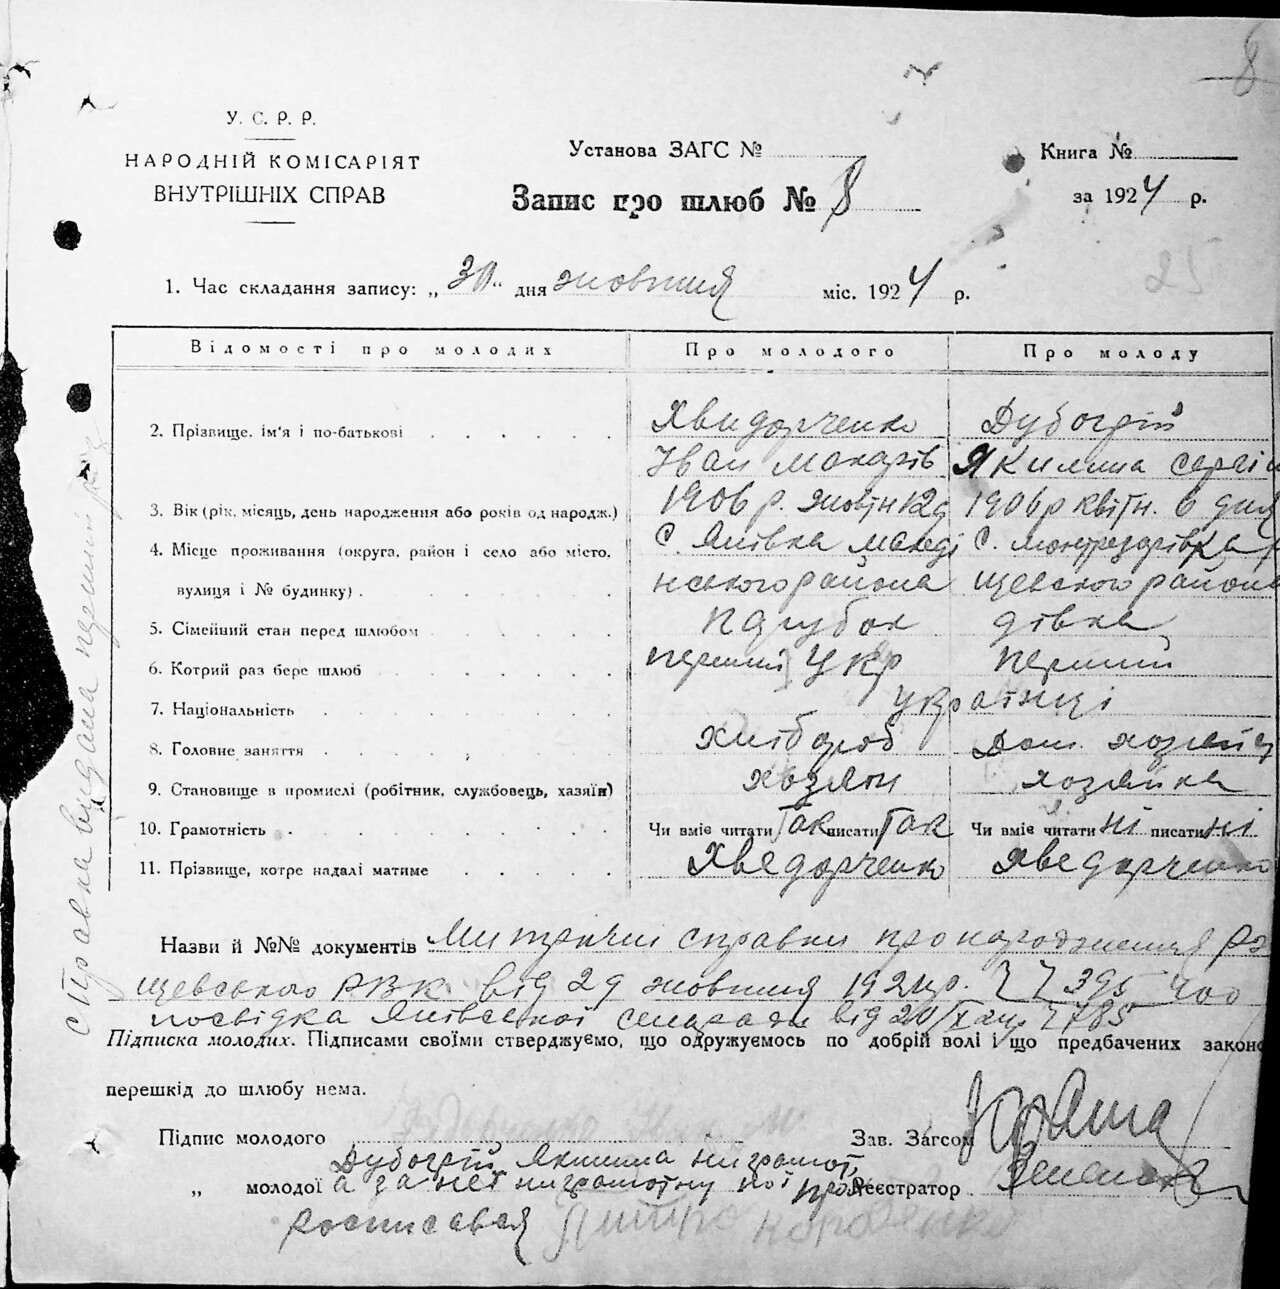 8
У. С. Р. Р.
НАРОДНІЙ КОМІСАРІЯТ
ВНУТРІШНІХ СПРАВ
Установа ЗАГС №
Книга №
Запис про шлюб № 8
за 1924 р.
25
1. Час складання запису: „30" дня жовтня міс. 1924 р.
Відомості про молодих Про молодого Про молоду
2. Прізвище, ім'я і по-батькові Хвидорченко Дубогрій
Іван Макарів Якилина Сергіі
3. Вік (рік, місяць, день народження або років од народж.) 1906 р. жовтн 12 д 1906 р квітн. 6 дня
4. Місце проживання (округа, район і село або місто, С. Янівка С.
вулиця і № будинку). нського района щевского района
5. Сімейний стан перед шлюбом парубок дівка
6. Котрий раз бере шлюб перший укр перший
7. Національність українці
8. Головне заняття хлібороб Дом. хозяйк
9. Становище в промислі (робітник, службовець, хазяїн) хозяін хозяйка
10. Грамотність Чи вміє читати Так писати Так Чи вміє читати ні писати ні
11. Прізвище, котре надалі матиме Хведорченко Хведорченко
Назви й №№ документів справки про народження
щевського РВК від 29 жовтня 1924 р. 395 400
посвідка Янівської від 785
Підписка молодих. Підписами своїми стверджуємо, що одружуємось по добрій волі і що предбачених законо
перешкід до шлюбу нема.
Підпис молодого
Зав. Загсом
Дубогрій Якилина
„ молодої а за неї ниграмотну
Реєстратор
росписався
Справка видана